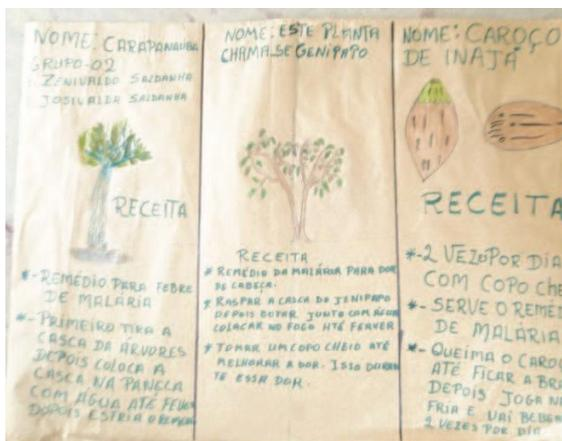 NOME: CARAPANAUBA
GRUPO-02
ZENIVALDO SALDANHA
JOSIVALDA SALDANHA
RECEITA
*-REMÉDIO PARA FEBRE
DE MALÁRIA
*-PRIMEIRO TIRA A
CASCA DA ÁRVORES
DEPOIS COLOCA A
CASCA NA PANELA
COM ÁGUA ATÉ
DEPOIS ESFRIA
NOME: ESTE PLANTA
CHAMA-SE GENIPAPO
RECEITA
* REMÉDIO DA MALÁRIA PARA DOR
DE CABEÇA.
* RASPAR A CASCA DO JENIPAPO
DEPOIS BOTAR JUNTO COM ÁGUA
COLACAR NO FOGO HTÉ FERVER
* TOMAR UM COPO CHEIO ATÉ
MELHORAR A DOR. ISSO DURAN
TE ESSA DOR.
NOME: CAROÇO
DE INAJÁ
RECEITA
*-2 VEZES POR DIA
COM COPO CHE
*- SERVE O REMÉD
DE MALÁRIA
*- QUEIMA O CAROÇ
ATÉ FICAR A BRA
DEPOIS JOGA NA
FRIA E VAI BEBER
2 VEZES POR DIA